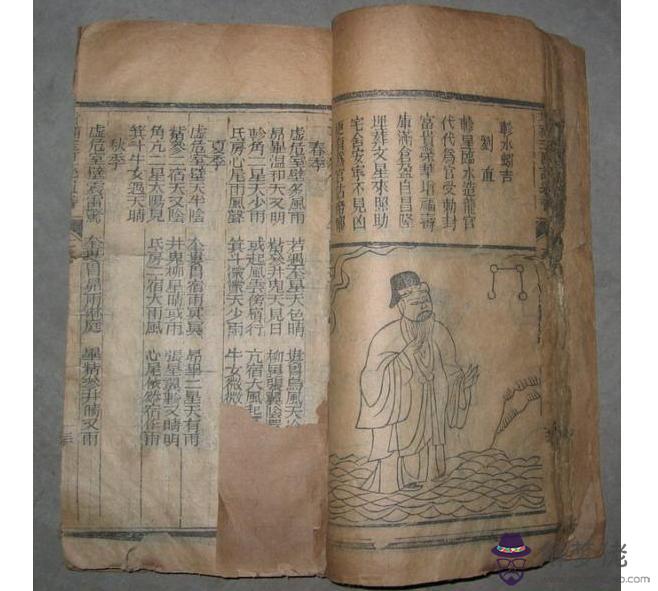 軫水蚓吉
劉直
軫星臨水造龍宮
代代爲官受勅封
富貴榮華增福壽
庫滿倉盈自昌隆
埋葬文星來照助
宅舍安寧不見凶
春季
虛危室壁多風雨 若遇奎星天色晴 婁胃烏風天冷
昴畢溫和天又明 觜參井鬼天見日 柳星張翼陰
軫角二星天少雨 或起風雲傍嶺行 亢宿大風起
氐房心尾雨風聲 箕斗濛濛天少雨 牛女微微
夏季
虛危室壁天半陰 奎婁胃宿雨冥冥 昴畢二星天有雨
觜參二宿天又陰 井鬼柳星晴或雨 張星翼軫又晴明
角亢二星太陽見 氐房二宿大雨風 心尾依然宿作雨
箕斗牛女遇天晴
秋季
虛危室壁震雷驚 奎婁胃昴雨淋庭 畢觜參井晴又雨